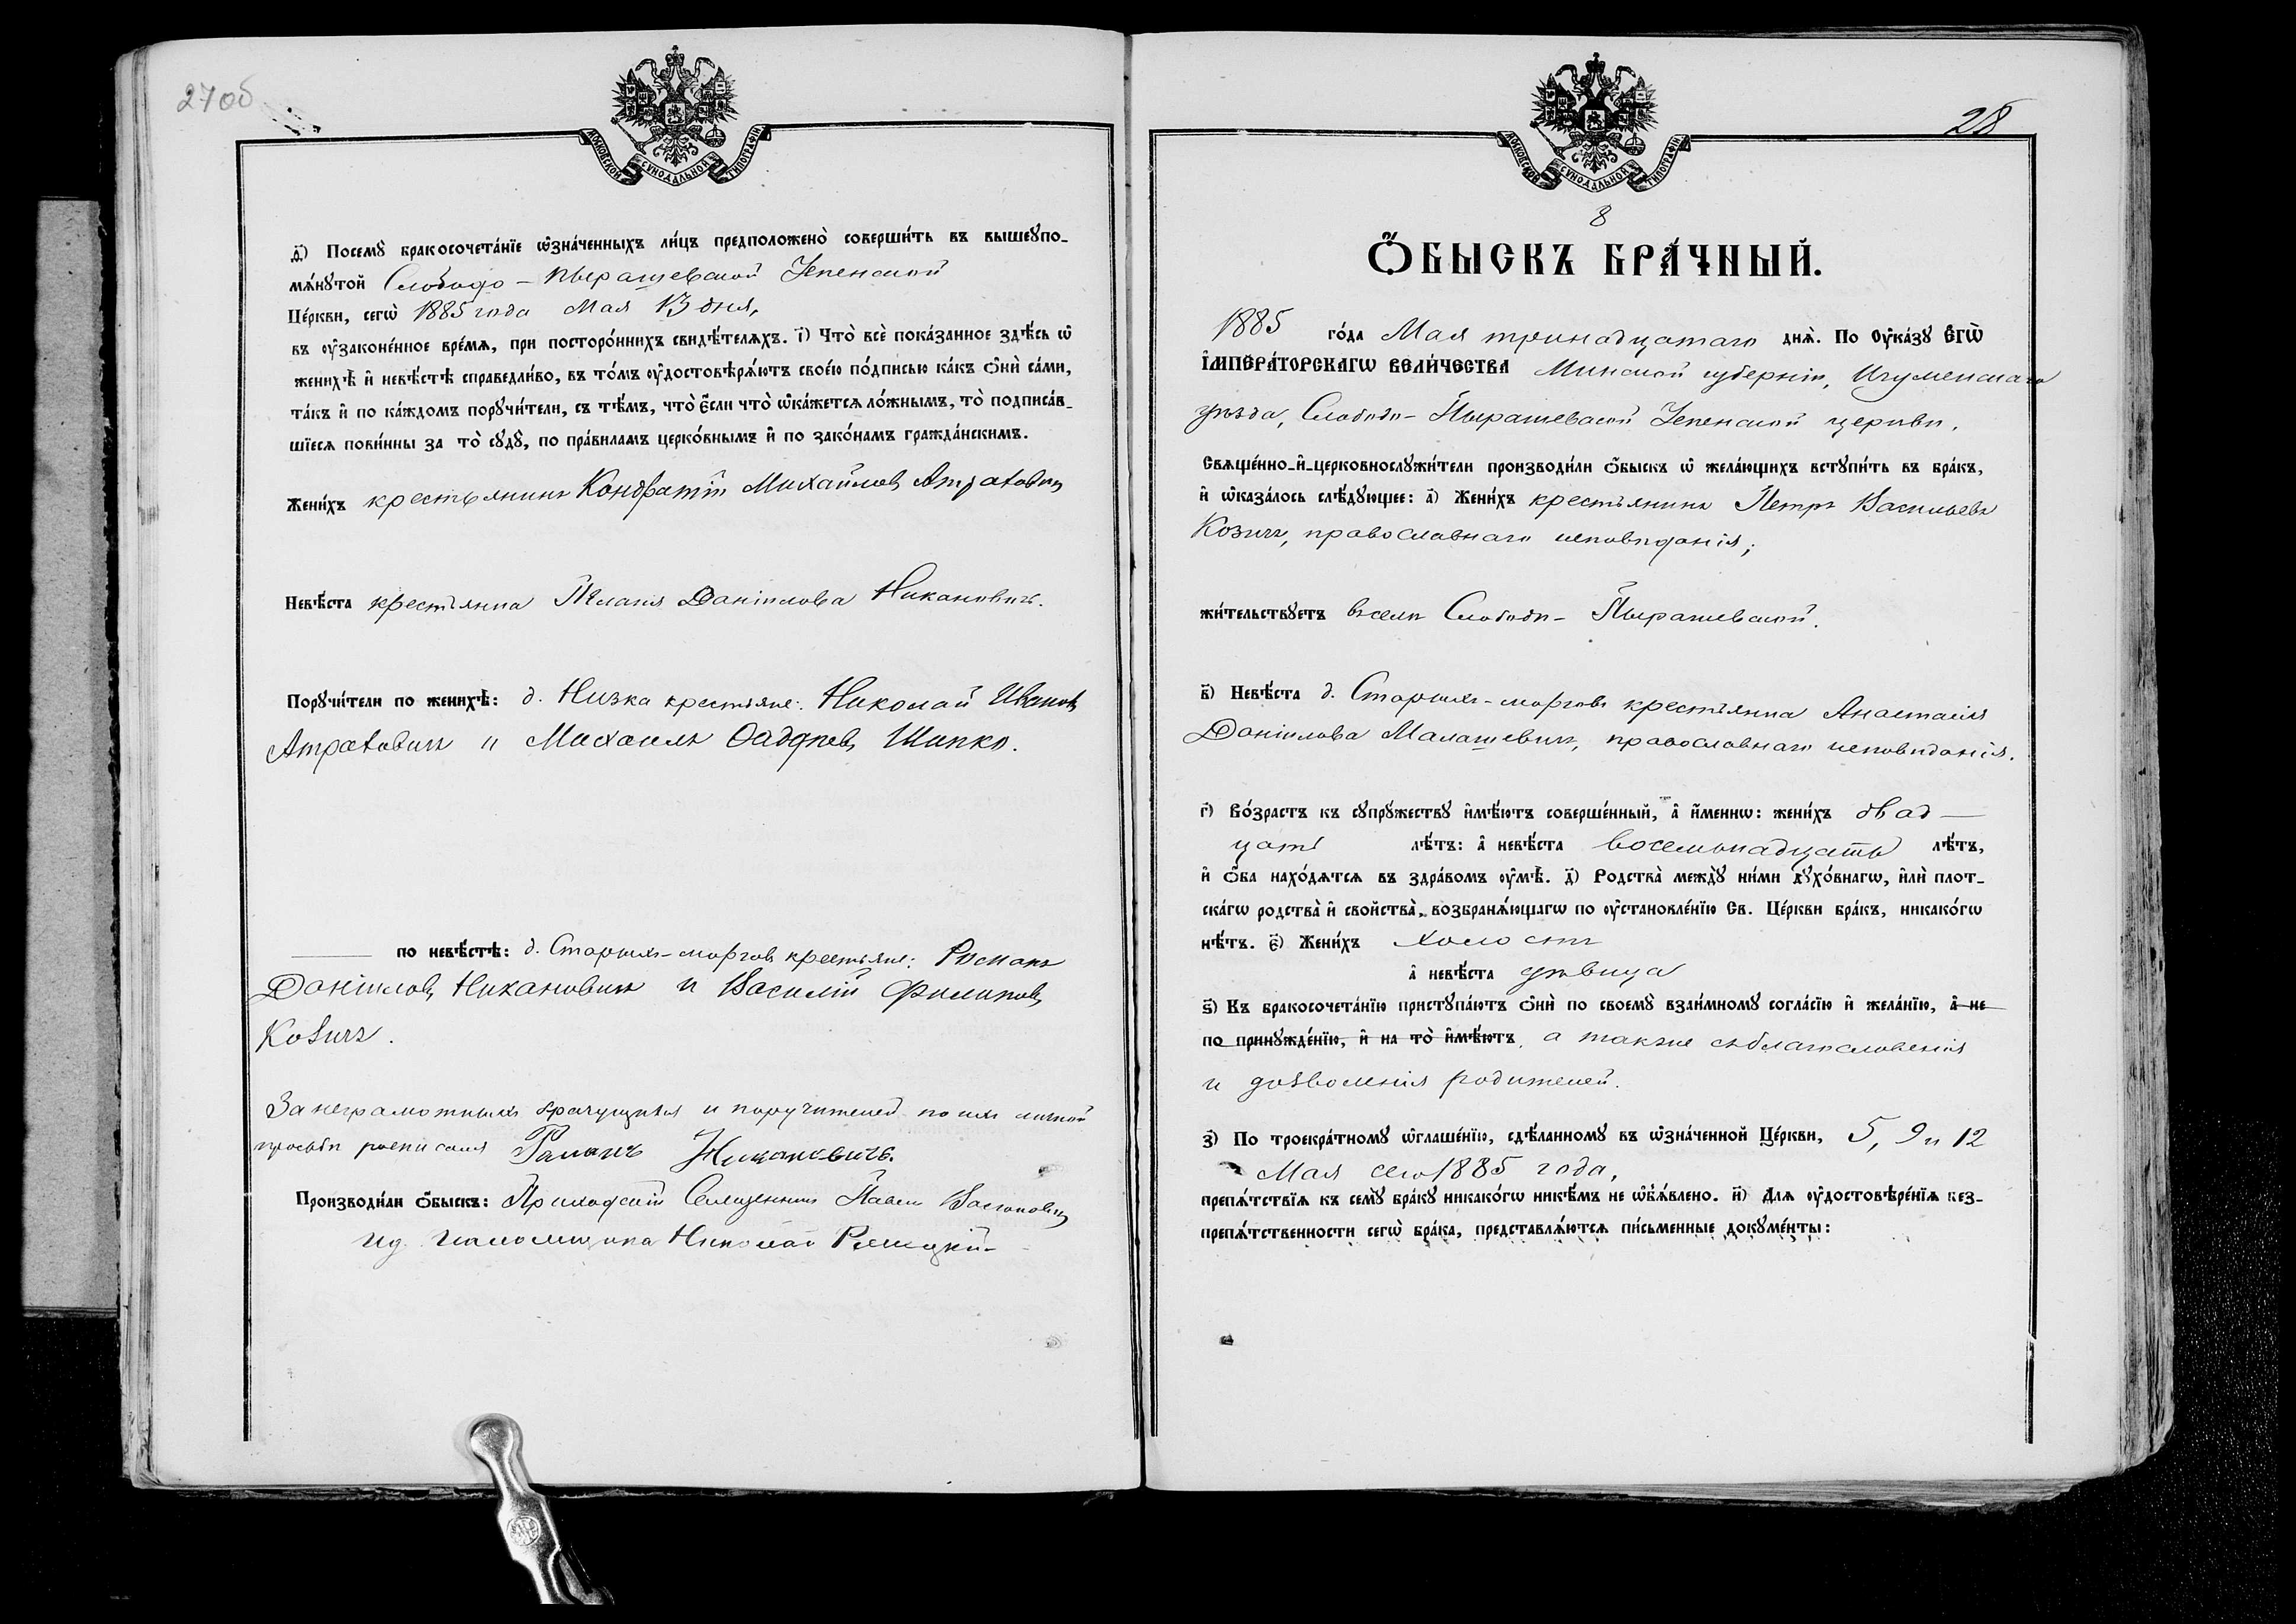 27об
МОСКОВСКОЙ СУНОДАЛЬНОЙ ТИПОГРАФІИ
д҃) Посемꙋ̀ бракосочета́нїе ѡ҆зна́ченныхъ ли́цъ предположено̀ соверши́ть въ вышеꙋпо-
мѧ́нꙋтой Слободо-Пырашевской Успенской
Це́ркви, сегѡ̀ 1885 года Мая 13 дня,
въ ᲂу҆законе́нное вре́мѧ, при посторо́ннихъ свидѣ́телѧхъ. і҃) Что̀ всѐ пока́занное здѣ́сь ѡ҆
женихѣ̀ и҆ невѣ́стѣ справедли́во, въ то́мъ ᲂу҆достовѣрѧ́ютъ свое́ю по́дписью ка́къ ѻ҆нѝ са́ми,
та́къ и҆ по ка́ждомъ порꙋчи́тели, съ тѣ́мъ, что̀ є҆́сли что̀ ѡ҆ка́жетсѧ ло́жнымъ, то̀ подписа́в-
шїесѧ пови́нны за то̀ сꙋдꙋ̀, по пра́виламъ церко́внымъ и҆ по зако́намъ гражда́нскимъ.
Жени́хъ крестьянинъ Кондратій Михайловъ Атраховичъ
Невѣ́ста крестьянка Меланія Даніилова Никановичъ.
Порꙋчи́тели по женихѣ̀: д. Низка крестьяне: Николай Ивановъ
Атраховичъ и Михаилъ Ѳаддѣевъ Шипко.
по невѣ́стѣ: д. Старыхъ-морговъ крестьяне: Романъ
Даніиловъ Никановичъ и Василій Филиповъ
Козичъ.
За неграмотныхъ брачущихся и поручителей по ихъ личной
просьбѣ росписался Раманъ Никановичъ.
Производи́ли ѻ҆́быскъ: Приходскій Священникъ Павелъ
Ид. псаломщика Николай
28
МОСКОВСКОЙ СУНОДАЛЬНОЙ ТИПОГРАФІИ
8
Ѻ҆́БЫСКЪ БРА́ЧНЫЙ.
1885 го́да Мая тринадцатаго днѧ̀. По Оу҆ка́зꙋ Є҆ГѠ̀
І҆МПЕРА́ТОРСКАГѠ ВЕЛИ́ЧЕСТВА Минской губерніи, Игуменскаго
уѣзда, Слободо-Пырашевской Успенской церкви,
Свѧще́нно-и҆-церковнослꙋжи́тели производи́ли ѻ҆́быскъ ѡ҆ жела́ющихъ встꙋпи́ть въ бра́къ,
и҆ ѡ҆каза́лось слѣ́дꙋющее: а҃) Жени́хъ крестьянинъ Петръ Васильевъ
Козичъ, православнаго исповѣданія;
жи́тельствꙋетъ въ селѣ Слободѣ-Пырашевской.
в҃) Невѣ́ста д. Старыхъ-морговъ крестьянка Анастасія
Даніилова Малашевичъ, православнаго исповѣданія.
г҃) Во́зрастъ къ сꙋпрꙋ́жествꙋ и҆мѣ́ютъ соверше́нный, а҆ и҆́меннѡ: жени́хъ двад-
цать лѣ́тъ: а҆ невѣ́ста восемьнадцать лѣ́тъ,
и҆ ѻ҆́ба нахо́дѧтсѧ въ здра́вомъ ᲂу҆мѣ̀. д҃) Родства̀ междꙋ̀ ни́ми дꙋхо́внагѡ, и҆лѝ плот-
ска́гѡ родства̀ и҆ свойства̀, возбранѧ́ющагѡ по ᲂу҆становле́нїю Св. Це́ркви бра́къ, никако́гѡ
нѣ́тъ. є҃) Жени́хъ холостъ
а҆ невѣ́ста дѣвица
ѕ҃) Къ бракосочета́нїю пристꙋпа́ютъ ѻ҆нѝ по своемꙋ̀ взаи́мномꙋ согла́сїю и҆ жела́нїю, а҆ не
по принꙋжде́нїю, и҆ на то̀ и҆мѣ́ютъ, а также съ благословенія
и дозволенія родителей.
з҃) По троекра́тномꙋ ѡ҆глаше́нїю, сдѣ́ланномꙋ въ ѡ҆зна́ченной Це́ркви, 5, 9 и 12
Мая сего 1885 года,
препѧ́тствїѧ къ семꙋ̀ бра́кꙋ никако́гѡ никѣ́мъ не ѡ҆б̾ѧ́влено. и҃) Длѧ ᲂу҆достовѣре́нїѧ без-
препѧ́тственности сегѡ̀ бра́ка, представлѧ́ютсѧ пи́сьменные докꙋме́нты: